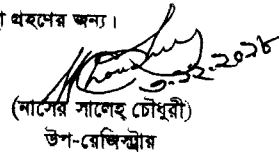 গ্রহণের জন্য।
৩-১২-২০২৮
(নাসের সালেহ চৌধুরী)
উপ-রেজিস্ট্রার